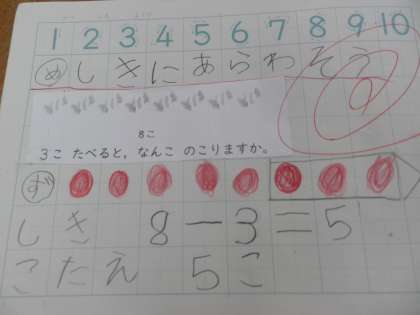 1 2 3 4 5 6 7 8 9 10
め しきにあらわそう
8こ
3こ たべると，なんこ のこりますか。
ず
しき 8－3＝5
こたえ 5こ